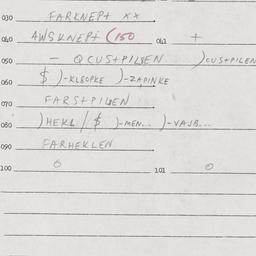 030 FARKNEPT xx
040 AWSKNEPT (150 041 +
050 - QCUSTPILSEN )CUSTPILEN
060 $ )-KLEOPKE )-ZAPINKE
070 FARSTPILEN
080 )HEKL / $ )-MEN... )-VAJB...
090 FARHEKLEN
100 0 101 0